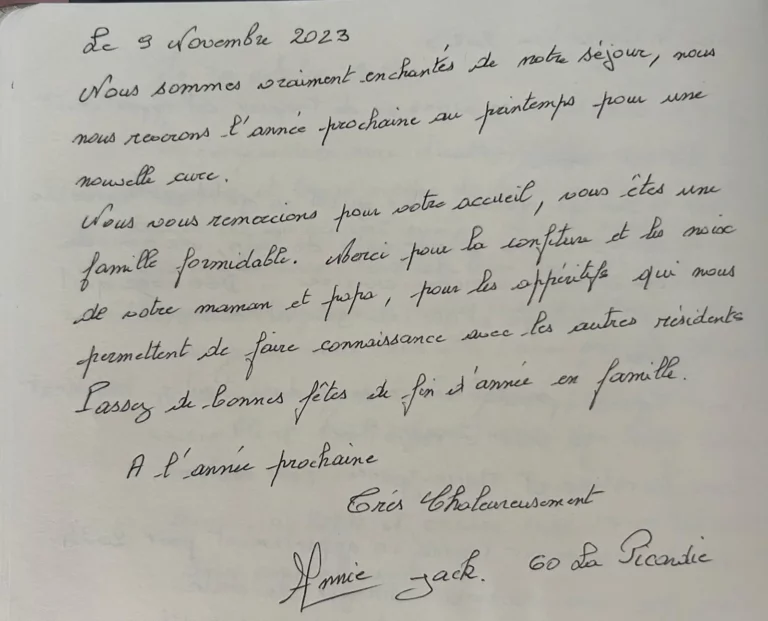 Le 9 Novembre 2023
Nous sommes vraiment enchantés de notre séjour, nous
nous reverrons l'année prochaine au printemps pour une
nouvelle cure.
Nous vous remercions pour votre accueil, vous êtes une
famille formidable. Merci pour la confiture et les noix
de votre maman et papa, pour les appéritifs qui nous
permettent de faire connaissance avec les autres résidents
Passez de bonnes fêtes de fin d'année en famille.
A l'année prochaine
Très Chaleureusement
Annie Jack. 60 La Picardie